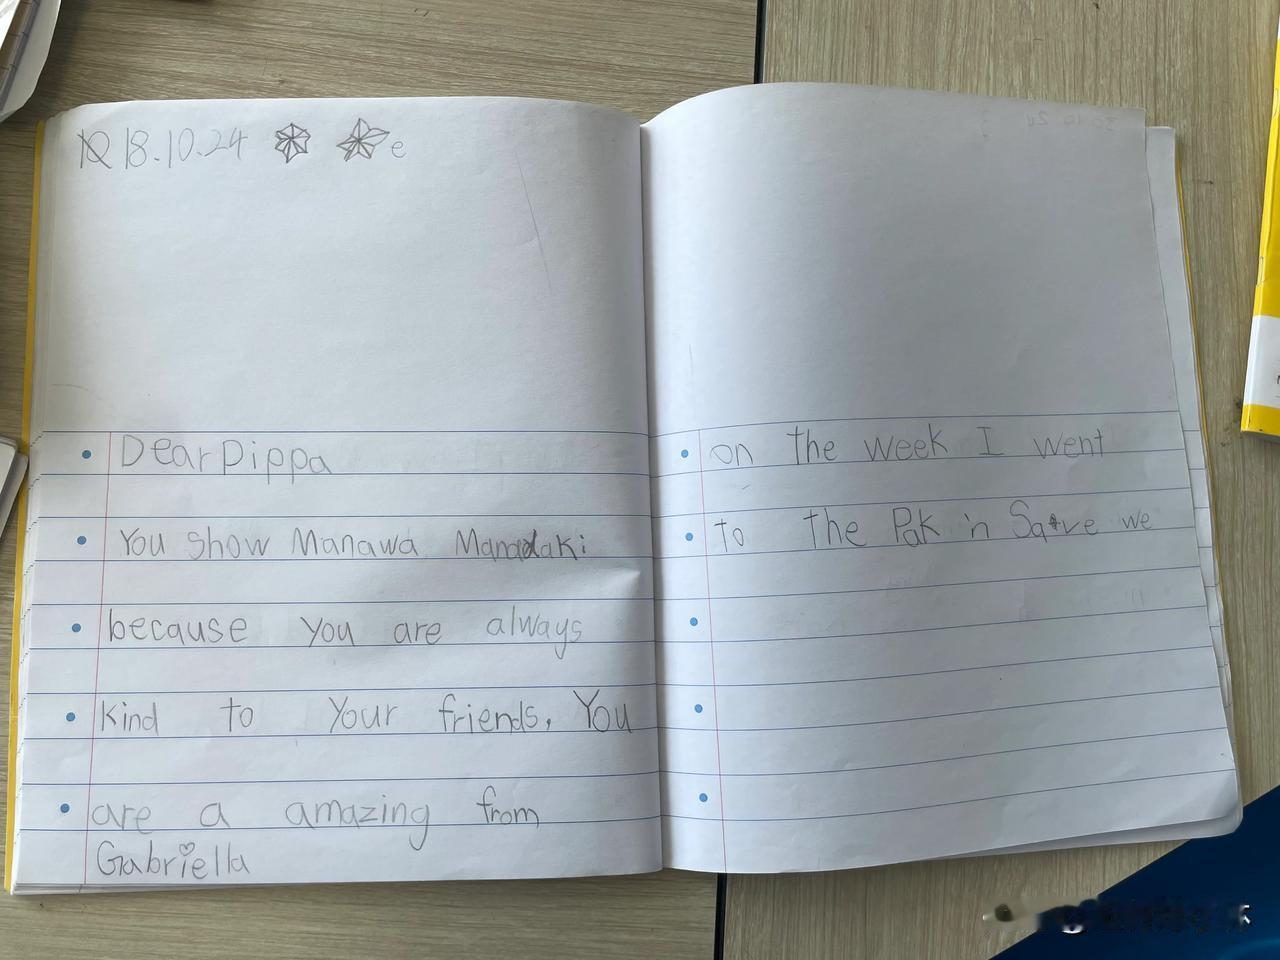 18.10.24 e
Dear Pippa
You show Manawa Manaaki
because you are always
kind to your friends. You
are a amazing from
Gabriella
on the week I went
to the Pak 'n Save we